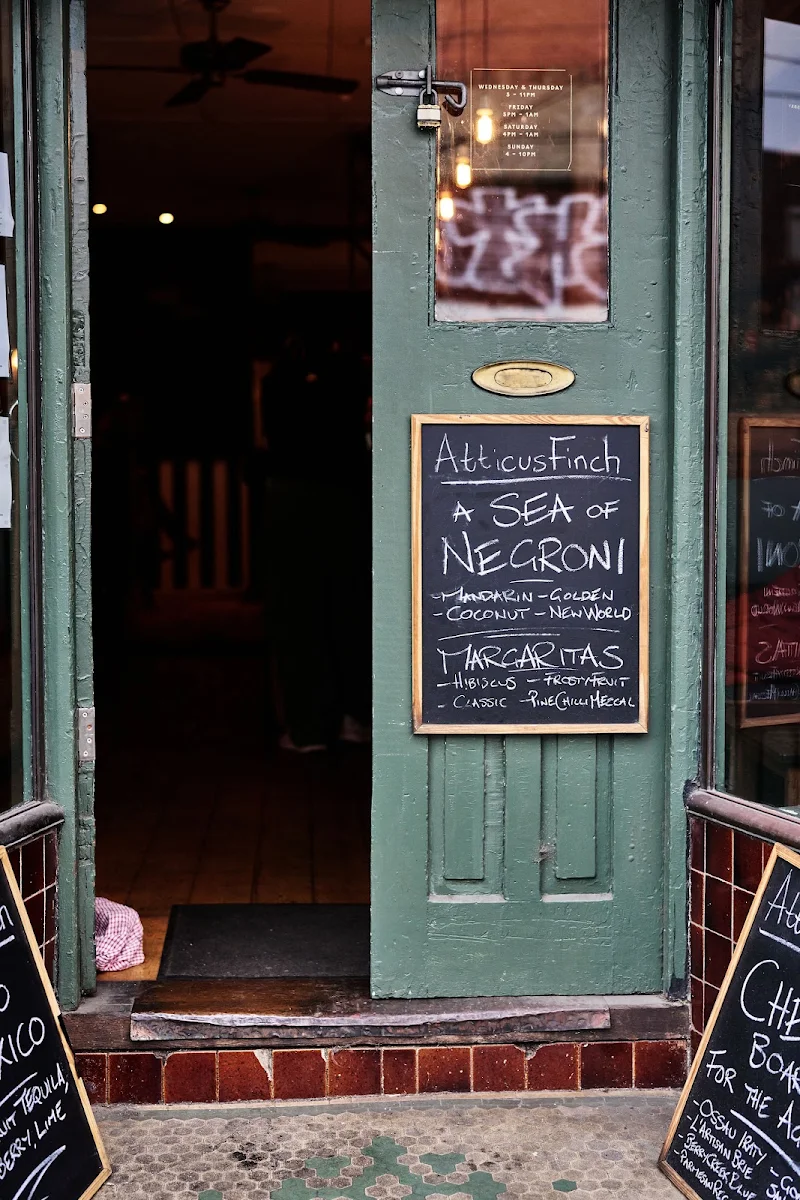 WEDNESDAY & THURSDAY
3 - 11PM
FRIDAY
3PM - 1AM
SATURDAY
4PM - 1AM
SUNDAY
4 - 10PM
AtticusFinch
A SEA OF
NEGRONI
- MANDARIN - GOLDEN
- COCONUT - NEW WORLD
MARGARITAS
- HIBISCUS - FROSTYFRUIT
- CLASSIC - PINECHILLIMEZCAL
XICO
TEQUILA,
BERRY, LIME
BOAR
FOR THE
- OSSAU IRATY
- L'ARTISAN BRIE